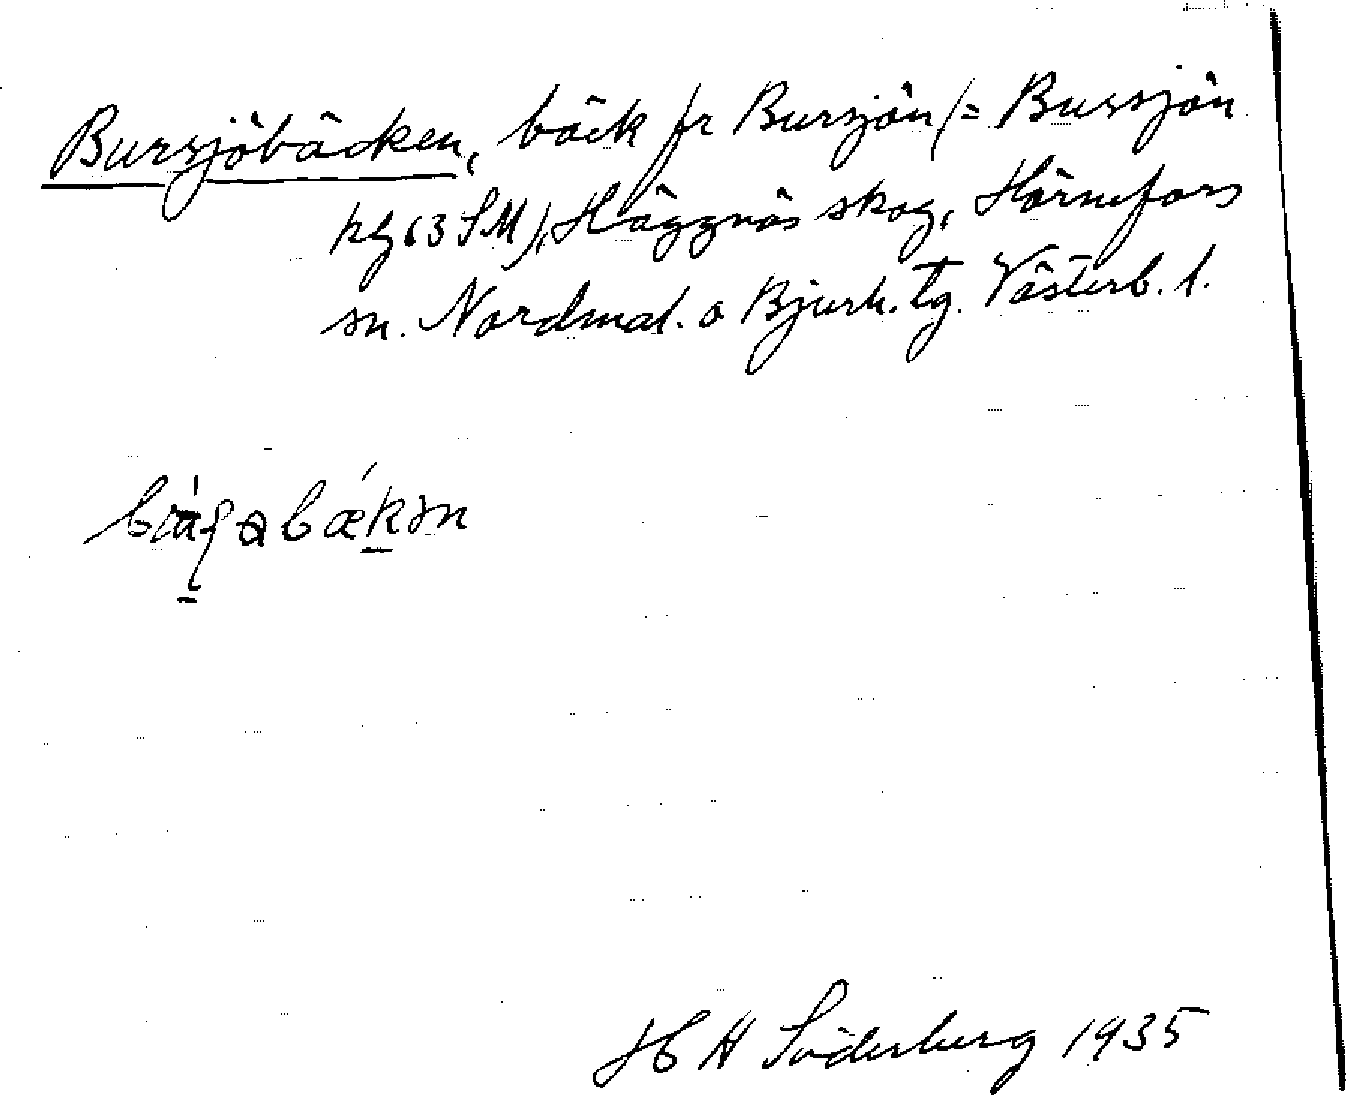 Bursjöbäcken, bäck fr Bursjön (= Bursjön
kg 63 SM), Häggnäs skog, Hörnefors
sn. Nordmal. o Bjurh. tg. Västerb. l.
H Söderberg 1935